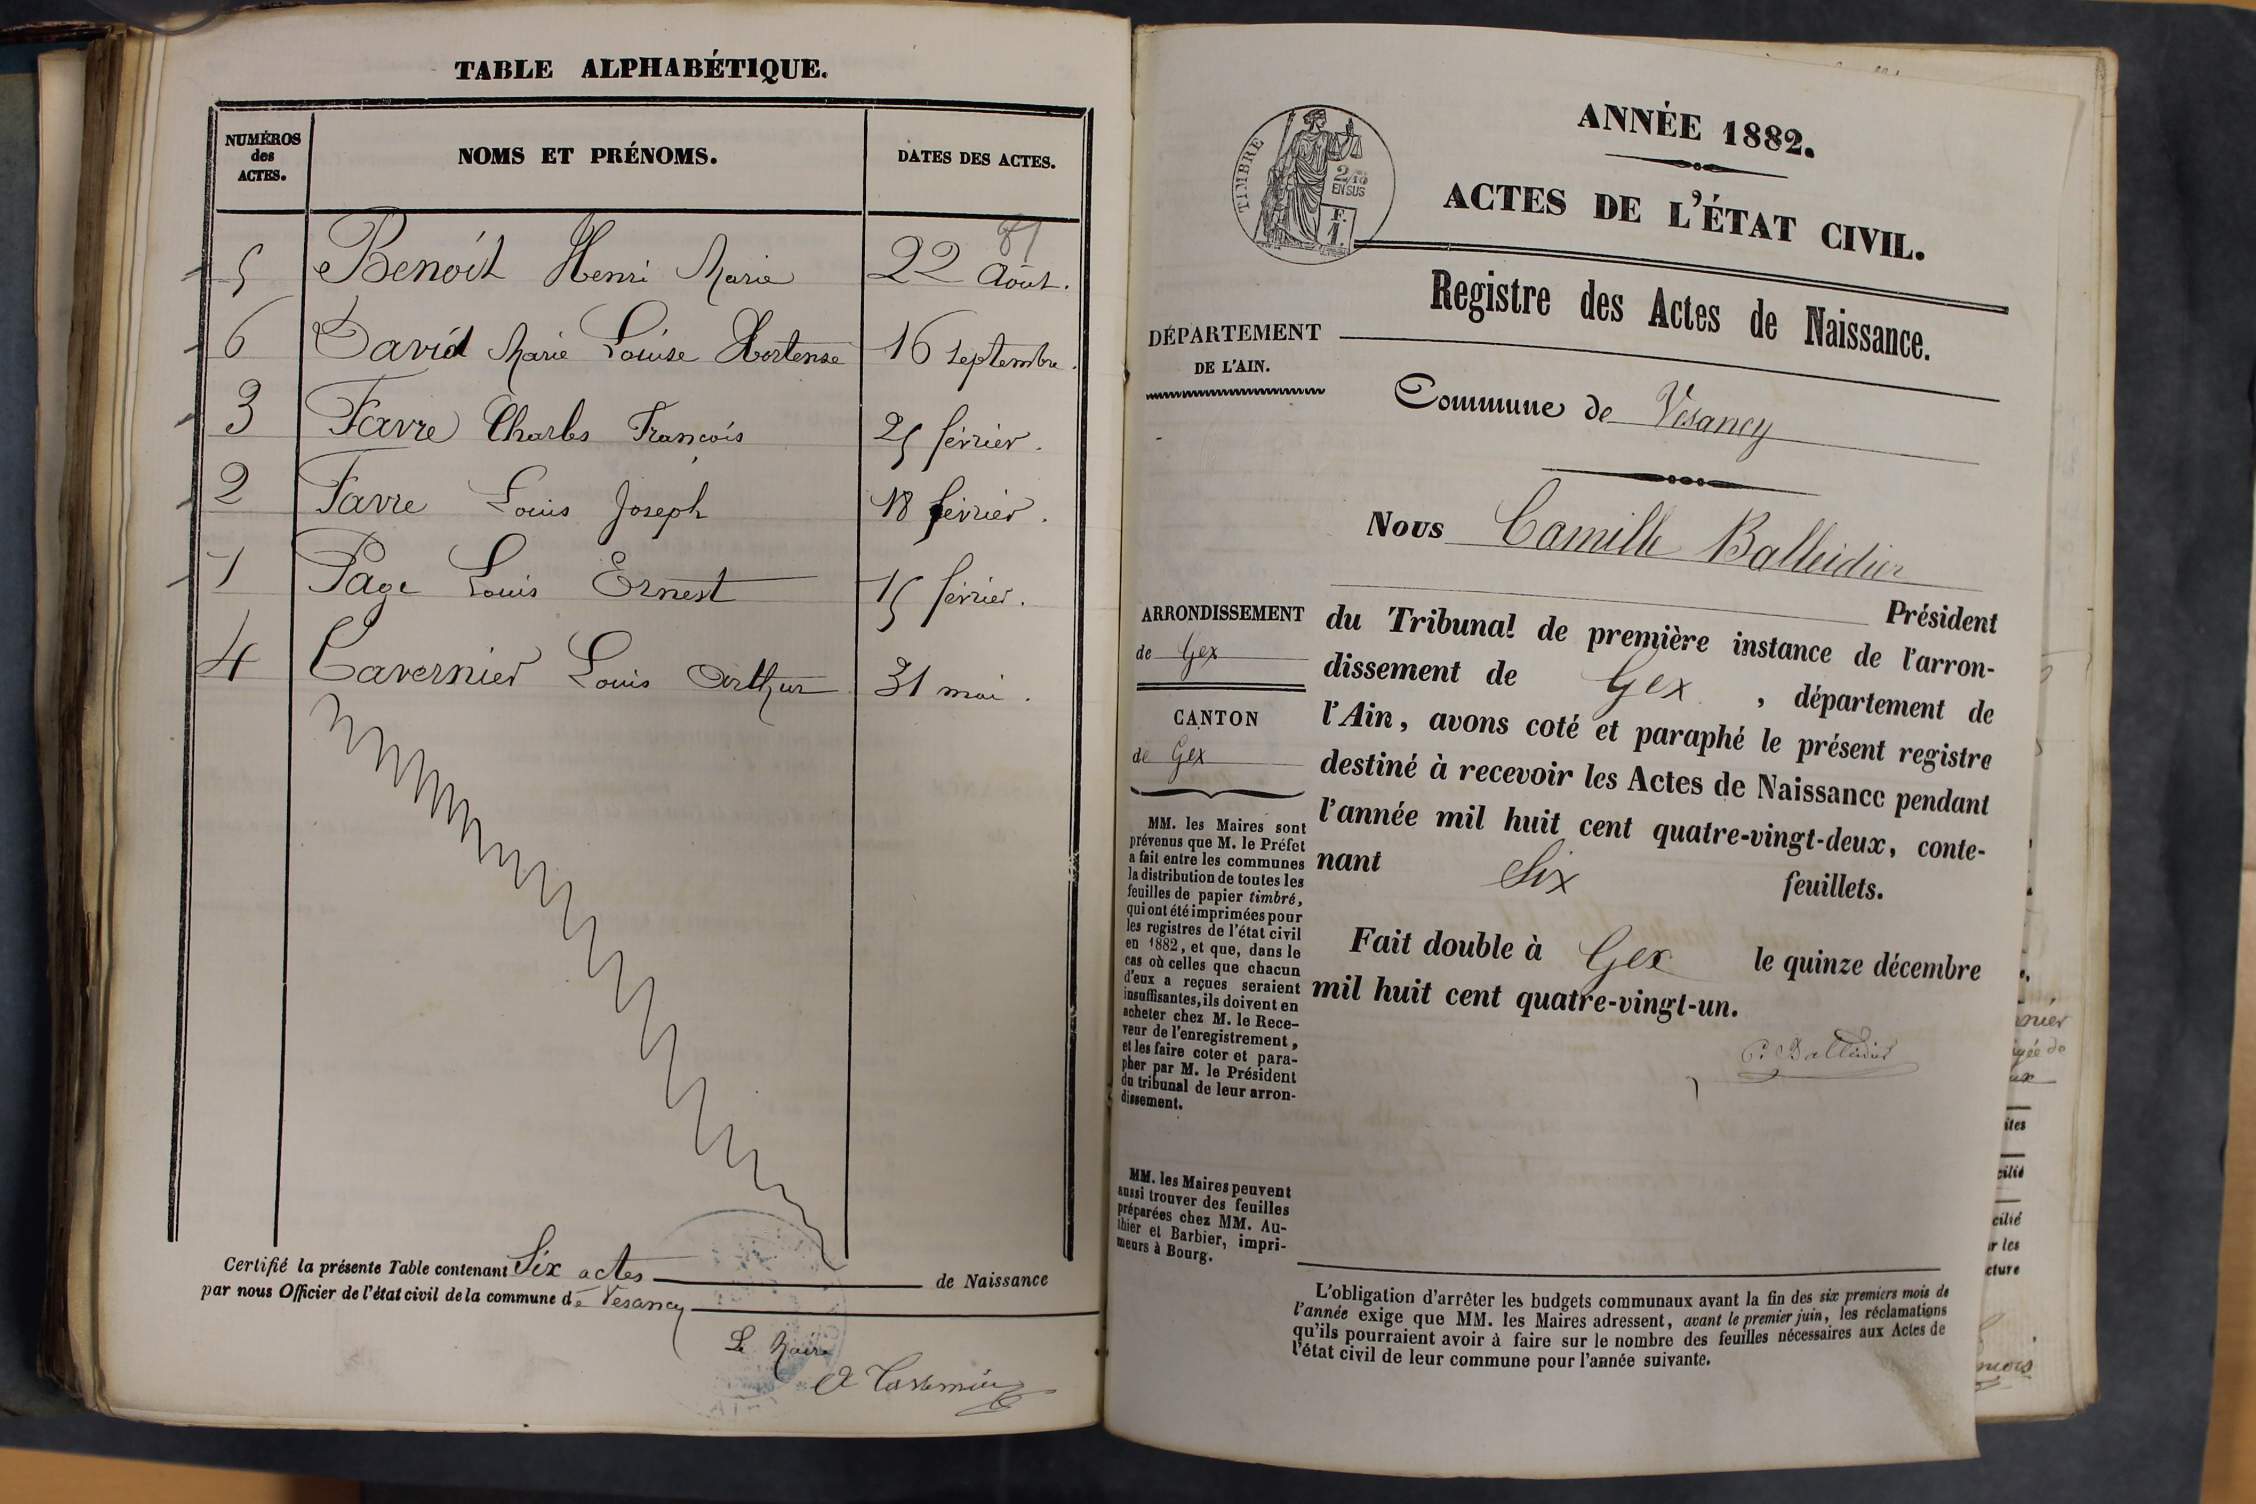 TABLE ALPHABÉTIQUE.
NUMÉROS des ACTES.
NOMS ET PRÉNOMS.
DATES DES ACTES.
81
5 Benoît Henri Marie 22 Août.
6 David Marie Louise Hortense 16 septembre.
3 Favre Charles François 25 février.
2 Favre Louis Joseph 18 février.
1 Page Louis Ernest 15 février.
4 Tavernier Louis Arthur 31 mai.
Certifié la présente Table contenant Six actes de Naissance
par nous Officier de l'état civil de la commune de Vesancy
Le Maire
Tavernier
ANNÉE 1882.
TIMBRE
2/10
EN SUS
F.
1.
ACTES DE L'ÉTAT CIVIL.
Registre des Actes de Naissance.
DÉPARTEMENT
DE L'AIN.
Commune de Vesancy
Nous Camille Balleidier
Président
ARRONDISSEMENT
de Gex
CANTON
de Gex
du Tribunal de première instance de l'arron-
dissement de Gex, département de
l'Ain, avons coté et paraphé le présent registre
destiné à recevoir les Actes de Naissance pendant
l'année mil huit cent quatre-vingt-deux, conte-
nant Six feuillets.
Fait double à Gex le quinze décembre
mil huit cent quatre-vingt-un.
C. Balleidier
MM. les Maires sont
prévenus que M. le Préfet
a fait entre les communes
la distribution de toutes les
feuilles de papier timbré,
qui ont été imprimées pour
les registres de l'état civil
en 1882, et que, dans le
cas où celles que chacun
d'eux a reçues seraient
insuffisantes, ils doivent en
acheter chez M. le Rece-
veur de l'enregistrement,
et les faire coter et para-
pher par M. le Président
du tribunal de leur arron-
dissement.
MM. les Maires peuvent
aussi trouver des feuilles
préparées chez MM. Au-
thier et Barbier, impri-
meurs à Bourg.
L'obligation d'arrêter les budgets communaux avant la fin des six premiers mois de
l'année exige que MM. les Maires adressent, avant le premier juin, les réclamations
qu'ils pourraient avoir à faire sur le nombre des feuilles nécessaires aux Actes de
l'état civil de leur commune pour l'année suivante.